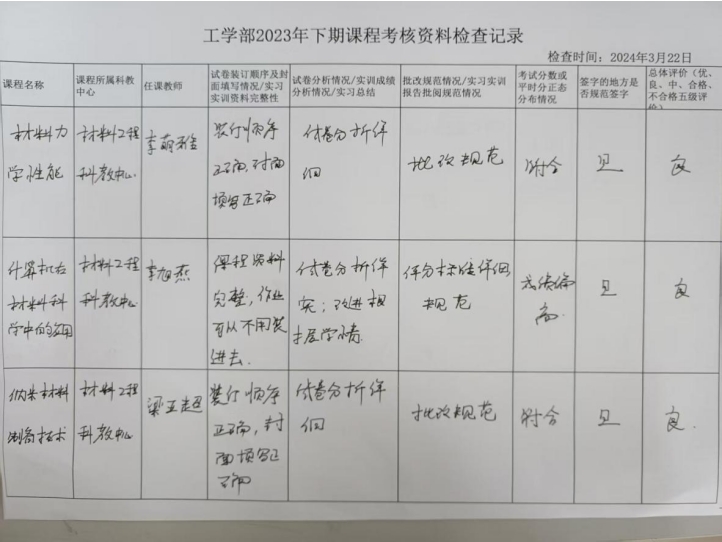 工学部2023年下期课程考核资料检查记录
检查时间：2024年3月22日
课程名称
课程所属科教
中心
任课教师
试卷装订顺序及封
面填写情况/实习
实训资料完整性
试卷分析情况/实训成绩
分析情况/实习总结
批改规范情况/实习实训
报告批阅规范情况
考试分数或
平时分正态
分布情况
签字的地方是
否规范签字
总体评价（优、
良、中、合格、
不合格五级评
价）
材料力
学性能
材料工程
科教中心
李萌
装订顺序
正确，封面
填写正确
试卷分析详
细
批改规范
符合
是
良
计算机在
材料科
学中的应用
材料工程
科教中心
李旭燕
课程资料
完整，作业
可以不用装
进去.
试卷分析详
实；改进根
据学情.
评分标准详细
规范
成绩偏
高.
是
良
纳米材料
制备技术
材料工程
科教中心
梁亚超
装订顺序
正确，封
面填写正
确
试卷分析详
细
批改规范
符合
是
良.